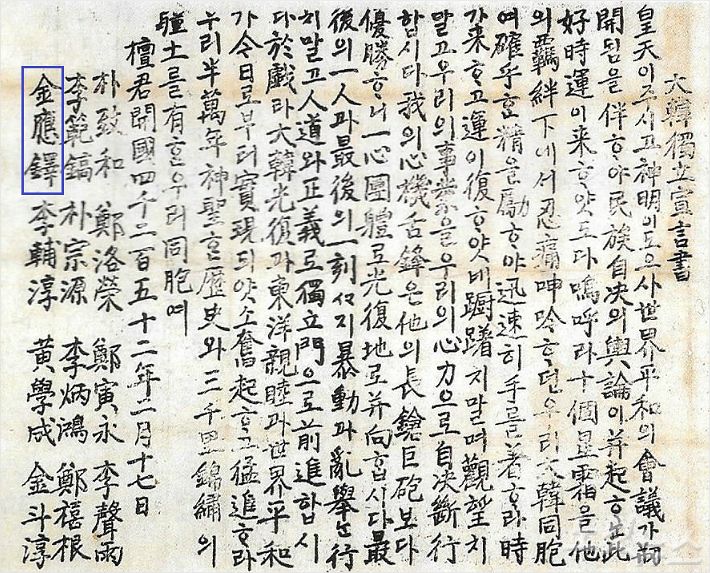 大韓獨立宣言書
皇天이주시고神明의도으사世界平和의會議가刱
開됨을伴ᄒᆞ야民族自决의輿論이并起ᄒᆞ此
好時運이来ᄒᆞ얏도다嗚呼라十個星霜을他
의羈絆下에서忍痛呻吟ᄒᆞ던우리大韓同胞
여確乎ᄒᆞᆫ精을勵ᄒᆞ야迅速히手를着ᄒᆞ라時
가来ᄒᆞ고運이復ᄒᆞ얏네躕躇치말며觀望치
말고우리의事業을우리의心力으로自决斷行
합시다我의心機舌鋒은他의長鎗巨砲보다
優勝ᄒᆞ니一心團體로光復地로并向합시다最
後의一人과最後의一刻ᄭᅡ지暴動과亂擧는行
치말고人道와正義로獨立門으로前進합시
다於戲라大韓光復과東洋親睦과世界平和
가今日로부터實現되얏소奮起ᄒᆞ고猛進ᄒᆞ라
우리半萬年神聖ᄒᆞᆫ歷史와三千里錦繡의
疆土를有ᄒᆞᆫ우리同胞여
檀君開國四千二百五十二年二月十七日
朴致和 鄭洛榮 鄭寅永 李聲雨
李範鎬 朴宗源 李炳鴻 鄭禧根
金應鐸 李輔淳 黃學成 金斗淳